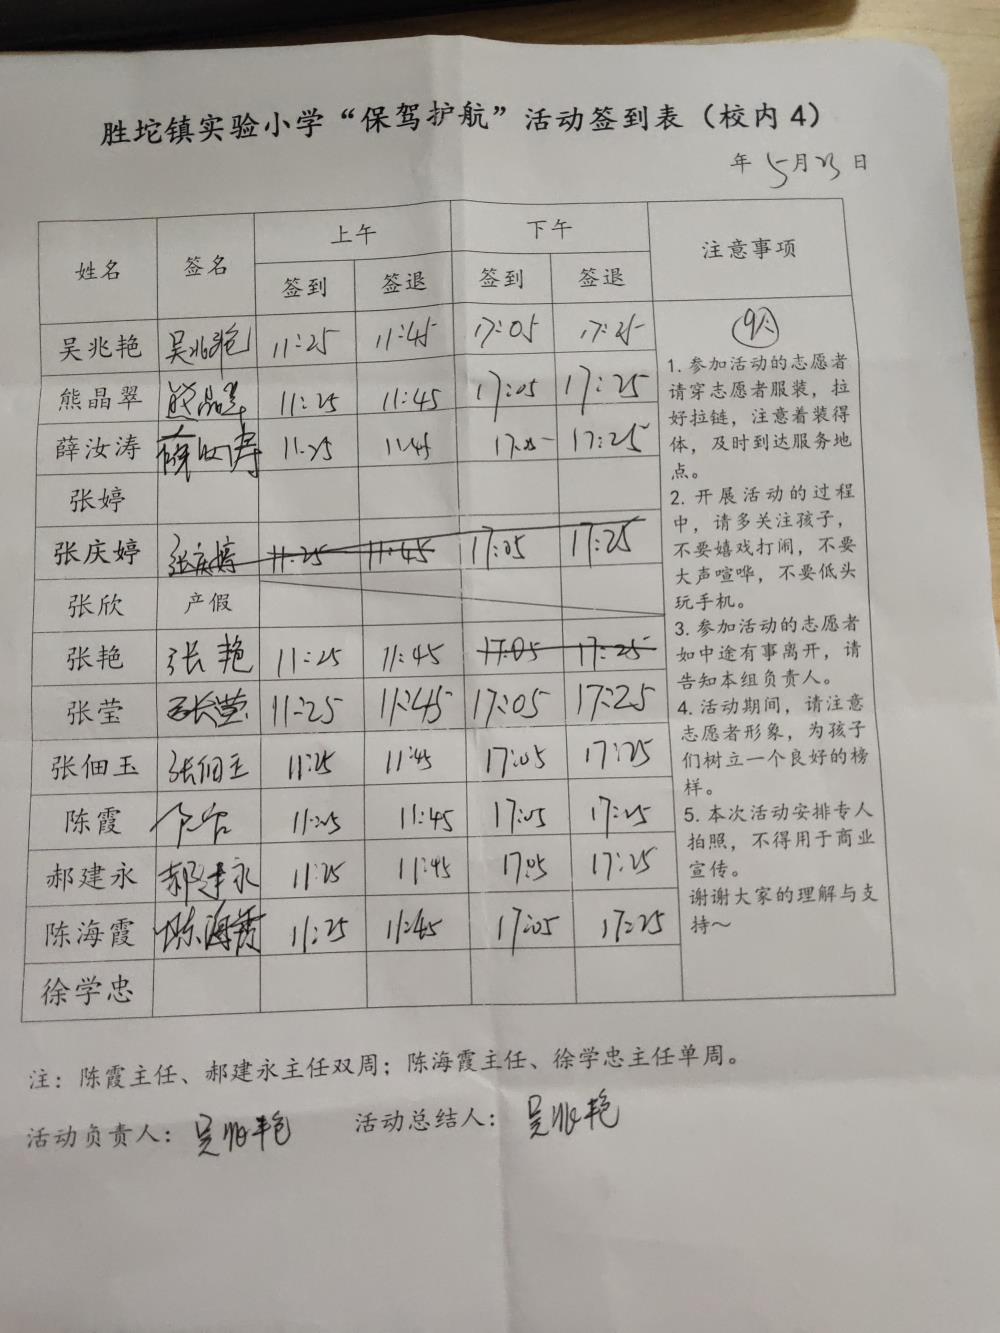 胜坨镇实验小学“保驾护航”活动签到表（校内 4）
年 5月23日
姓名 签名 上午 下午 注意事项
签到 签退 签到 签退
吴兆艳 吴兆艳 11:25 11:45 17:05 17:25
熊晶翠 熊晶翠 11:25 11:45 17:05 17:25
薛汝涛 薛汝涛 11:25 11:45 17:05 17:25
张婷
张庆婷 张庆婷 11:25 11:45 17:05 17:25
张欣 产假
张艳 张艳 11:25 11:45 17:05 17:25
张莹 张莹 11:25 11:45 17:05 17:25
张佃玉 张佃玉 11:25 11:45 17:05 17:25
陈霞 11:25 11:45 17:05 17:25
郝建永 郝建永 11:25 11:45 17:05 17:25
陈海霞 陈海霞 11:25 11:45 17:05 17:25
徐学忠
9人
1. 参加活动的志愿者
请穿志愿者服装，拉
好拉链，注意着装得
体，及时到达服务地
点。
2. 开展活动的过程
中，请多关注孩子，
不要嬉戏打闹，不要
大声喧哗，不要低头
玩手机。
3. 参加活动的志愿者
如中途有事离开，请
告知本组负责人。
4. 活动期间，请注意
志愿者形象，为孩子
们树立一个良好的榜
样。
5. 本次活动安排专人
拍照，不得用于商业
宣传。
谢谢大家的理解与支
持～
注：陈霞主任、郝建永主任双周；陈海霞主任、徐学忠主任单周。
活动负责人：吴兆艳 活动总结人：吴兆艳